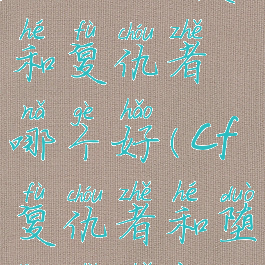 hé fù chóu zhě
和复仇者
nǎ gè hǎo
哪个好(cf
fù chóu zhě hé duò
复仇者和堕